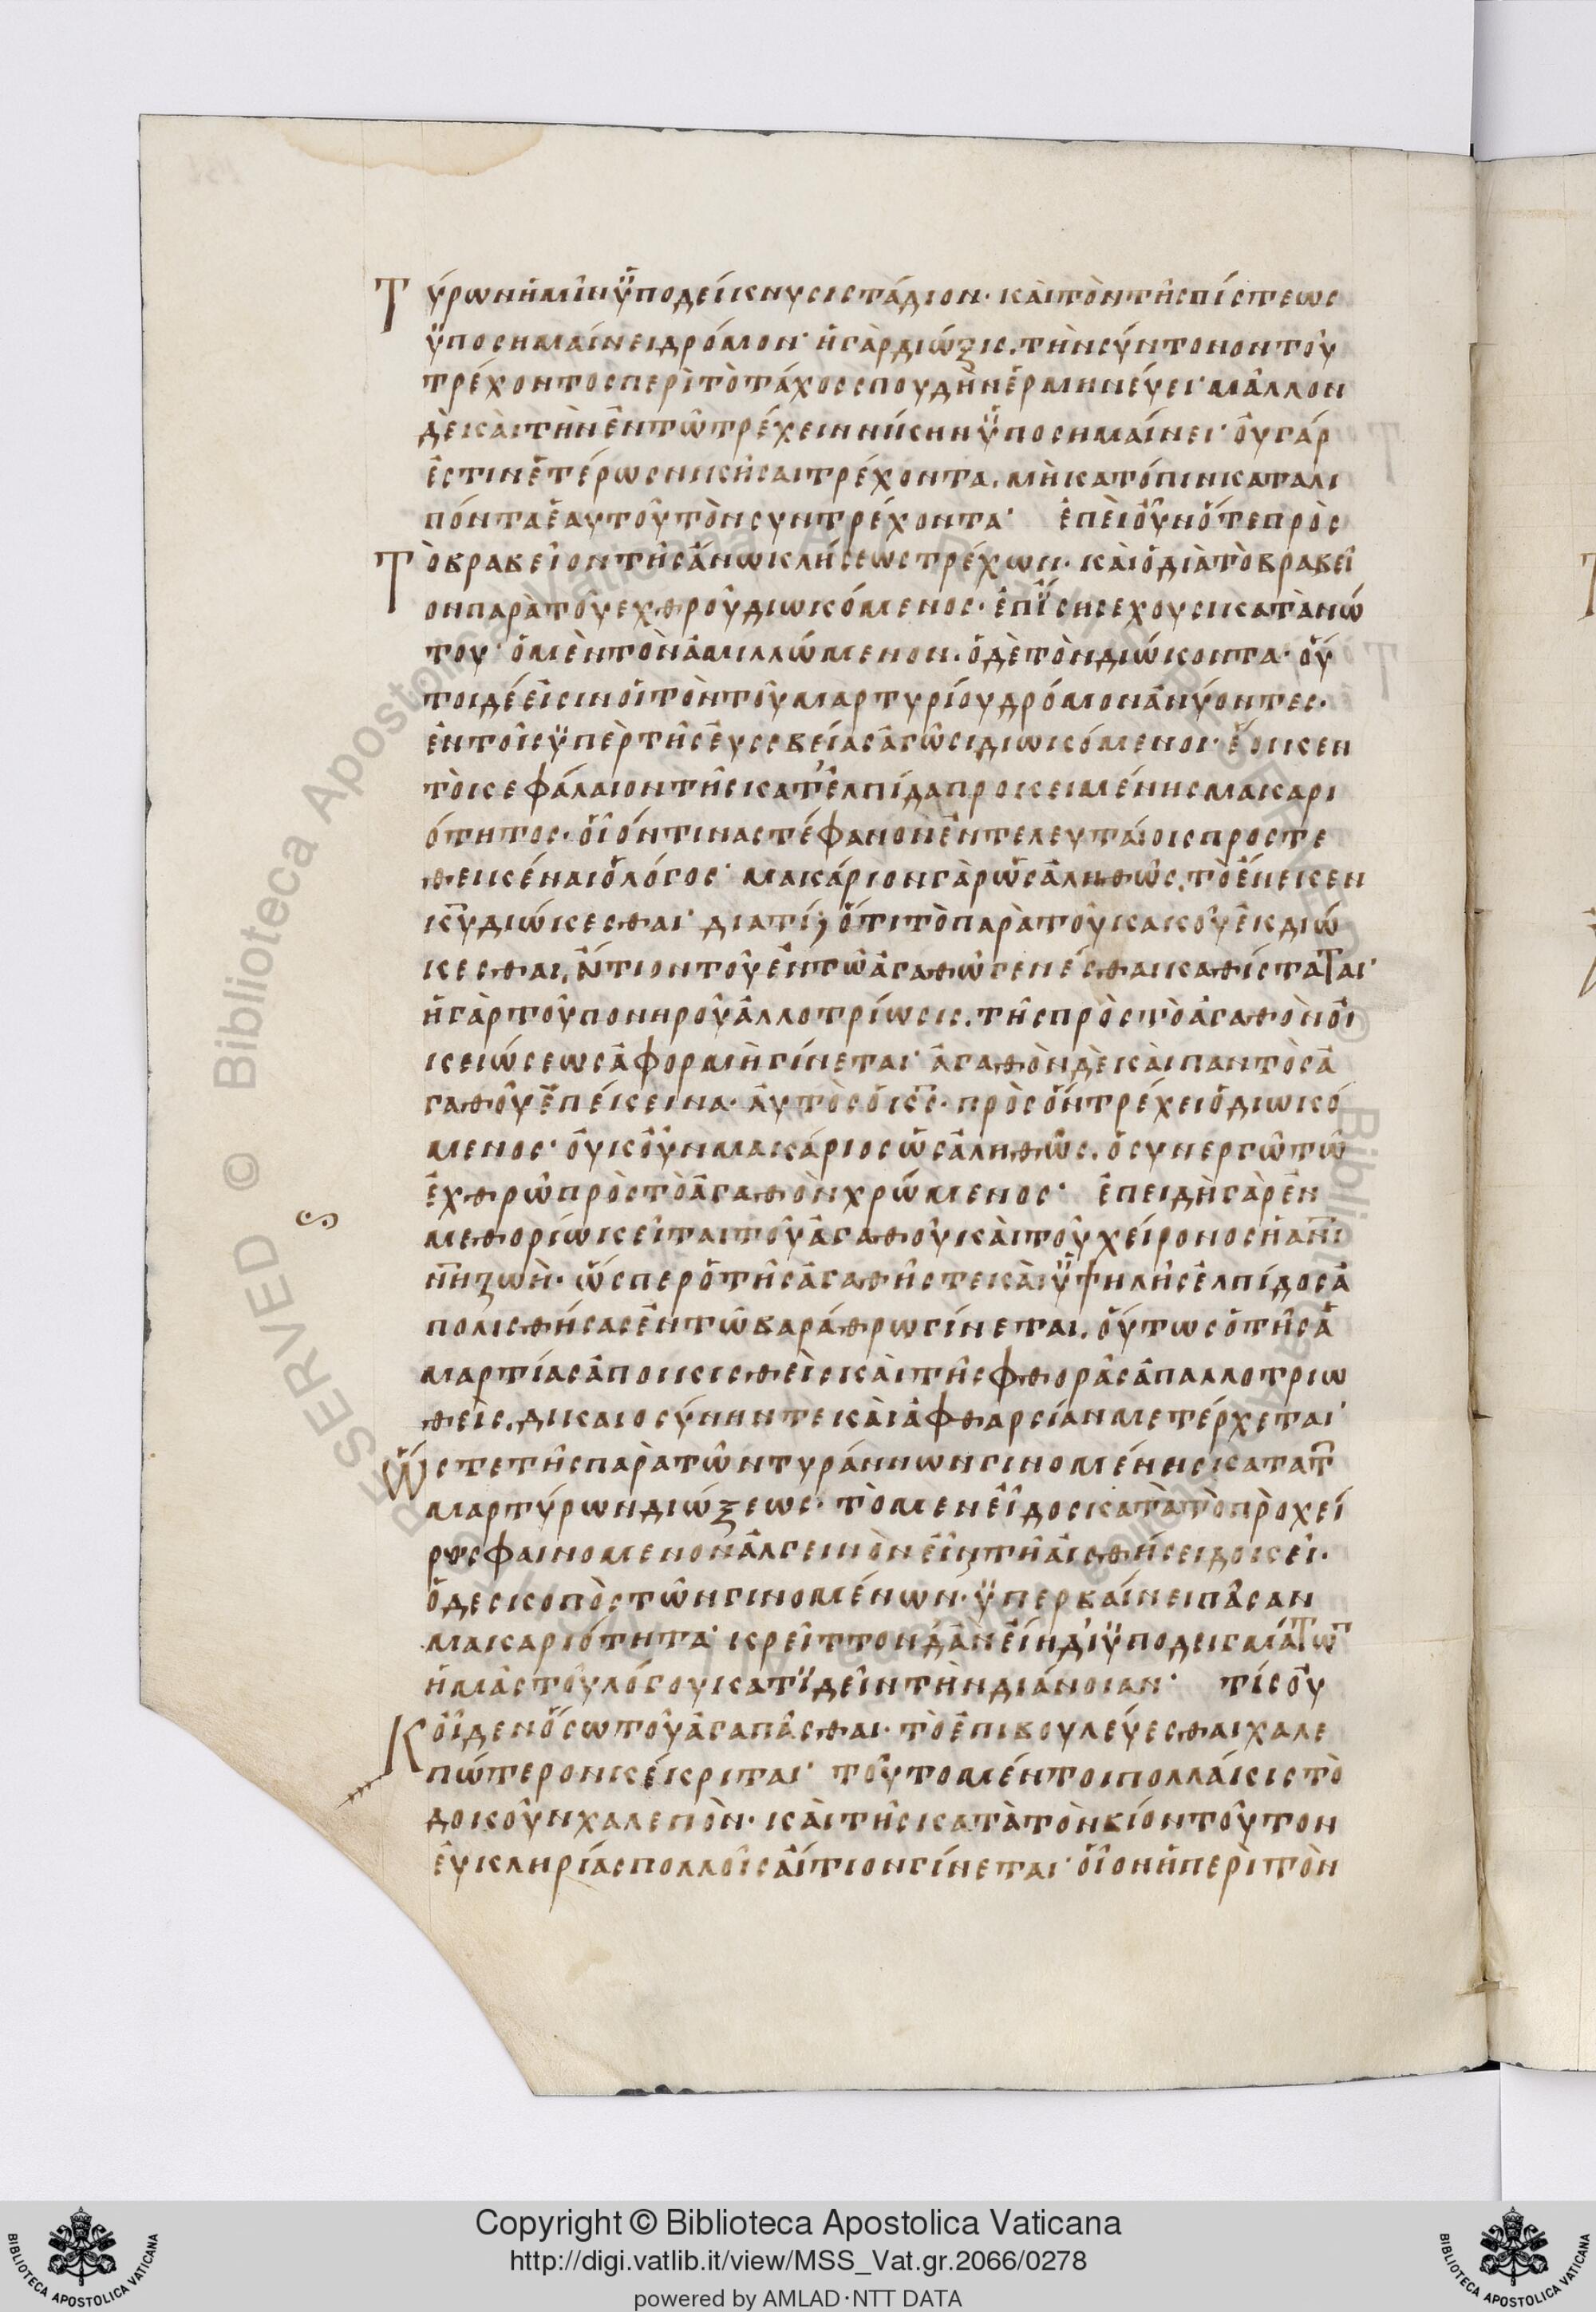 Τύρων ἡμῖν ὑποδείκνυσι στάδιον· καὶ τὸν τῆς πίστεως
ὑποσημαίνει δρόμον· ἡ γὰρ δίωξις, τὴν σύντονον τοῦ
τρέχοντος περὶ τὸ τάχος σπουδὴν ἑρμηνεύει· μᾶλλον
δὲ καὶ τὴν ἐν τῶ τρέχειν νίκην ὑποσημαίνει· οὐ γάρ
ἐστιν ἑτέρως νικῆσαι τρέχοντα, μὴ κατόπιν καταλι
πόντα ἑαυτοῦ τὸν συντρέχοντα· ἐπεὶ οὖν ὅ τε πρὸς
Τὸ βραβεῖον τῆς ἄνω κλήσεως τρέχων· καὶ ὁ διὰ τὸ βραβεῖ
ον παρὰ τοῦ εχθροῦ διωκόμενος· ἐπΐσης εχουσι κατὰ νώ
του· ὁ μὲν τὸν ἁμιλλώμενον· ὁ δὲ τὸν διώκοντα· οὗ
τοι δέ εἰσιν οἱ τὸν τοῦ μαρτυρίου δρόμον ἀνύοντες·
ἐν τοῖς ὑπὲρ τῆς εὐσεβείας ἀγῶσι διωκόμενοι· ἔοικεν
τὸ κεφάλαιον τῆς κατ' ἐλπίδα προκειμένης μακαρι
ότητος· οἷόν τινα στέφανον ἐν τελευταίοις προστε
θεικέναι ὁ λόγος· μακάριον γὰρ ὡς ἀληθῶς, τὸ ἕνεκεν
κ̅υ̅ διώκεσθαι· διατί; ὅτι τὸ παρὰ τοῦ κακοῦ ἐκδιώ
κεσθαι, ἄιτιον τοῦ ἐν τῶ ἀγαθῶ γενέσθαι καθίσταται·
ἡ γὰρ τοῦ πονηροῦ ἀλλοτρίωσις, τῆς πρὸς τὸ ἀγαθὸν οἰ
κειώσεως ἀφορμὴ γίνεται· ἀγαθὸν δὲ καὶ παντὸς ἀ
γαθοῦ ἐπέκεινα· ἀυτὸς ὁ κ̅ς̅· πρὸς ὃν τρέχει ὁ διωκό
μενος· οὐκοῦν μακάριος ὡς ἀληθῶς, ὁ συνεργῶ τῶ
ἐχθρῶ πρὸς τὸ ἀγαθὸν χρώμενος· ἐπειδὴ γὰρ ἐν
μεθορίω κεῖται τοῦ ἀγαθοῦ καὶ τοῦ χείρονος ἡ α̅ν̅ι
ν̅η̅ ζωὴ· ὥσπερ ὁ τῆς ἀγαθῆς τε καὶ ὑψηλῆς ἐλπίδος ἀ
πολισθήσας ἐν τῶ βαράθρω γίνεται, οὕτως ὁ τῆς ἁ
μαρτίας ἀποικισθεὶς καὶ τῆς φθορᾶς ἀπαλλοτριω
θεὶς, δικαιοσύνην τε καὶ ἀφθαρσίαν μετέρχεται·
Ὥστε τῆς παρὰ τῶν τυράννων γινομένης κατα τ̅
μαρτύρων διώξεως· τὸ μεν εἶδος κατὰ τὸ πρὸχεί
ρως φαινομενον ἀλγεινὸν εἶναι τῆ ἀισθήσει δοκεῖ·
ὁ δε σκοπὸς τῶν γινομένων· ὑπερβαίνει πᾶσαν
μακαριότητα· κρεῖττον δ' ἂν εἴη δι' ὑποδειγμάτω̅
ἡμᾶς τοῦ λόγου κατϊδεῖν τὴν διάνοιαν· τίς οὐ
Κ οἶδεν ὅσω τοῦ ἀγαπᾶσθαι· τὸ ἐπιβουλεύεσθαι χαλε
πώτερον κέκριται· τοῦτο μέντοι πολλάκις τὸ
δοκοῦν χαλεπὸν· καὶ τῆς κατὰ τὸν βίον τοῦτον
εὐκληρίας πολλοῖς ἄιτιον γίνεται· οἷον ἡ περὶ τὸν
RESERVED © Biblioteca Apostolica Vaticana
Copyright © Biblioteca Apostolica Vaticana
http://digi.vatlib.it/view/MSS_Vat.gr.2066/0278
powered by AMLAD·NTT DATA
BIBLIOTECA APOSTOLICA VATICANA
BIBLIOTECA APOSTOLICA VATICANA